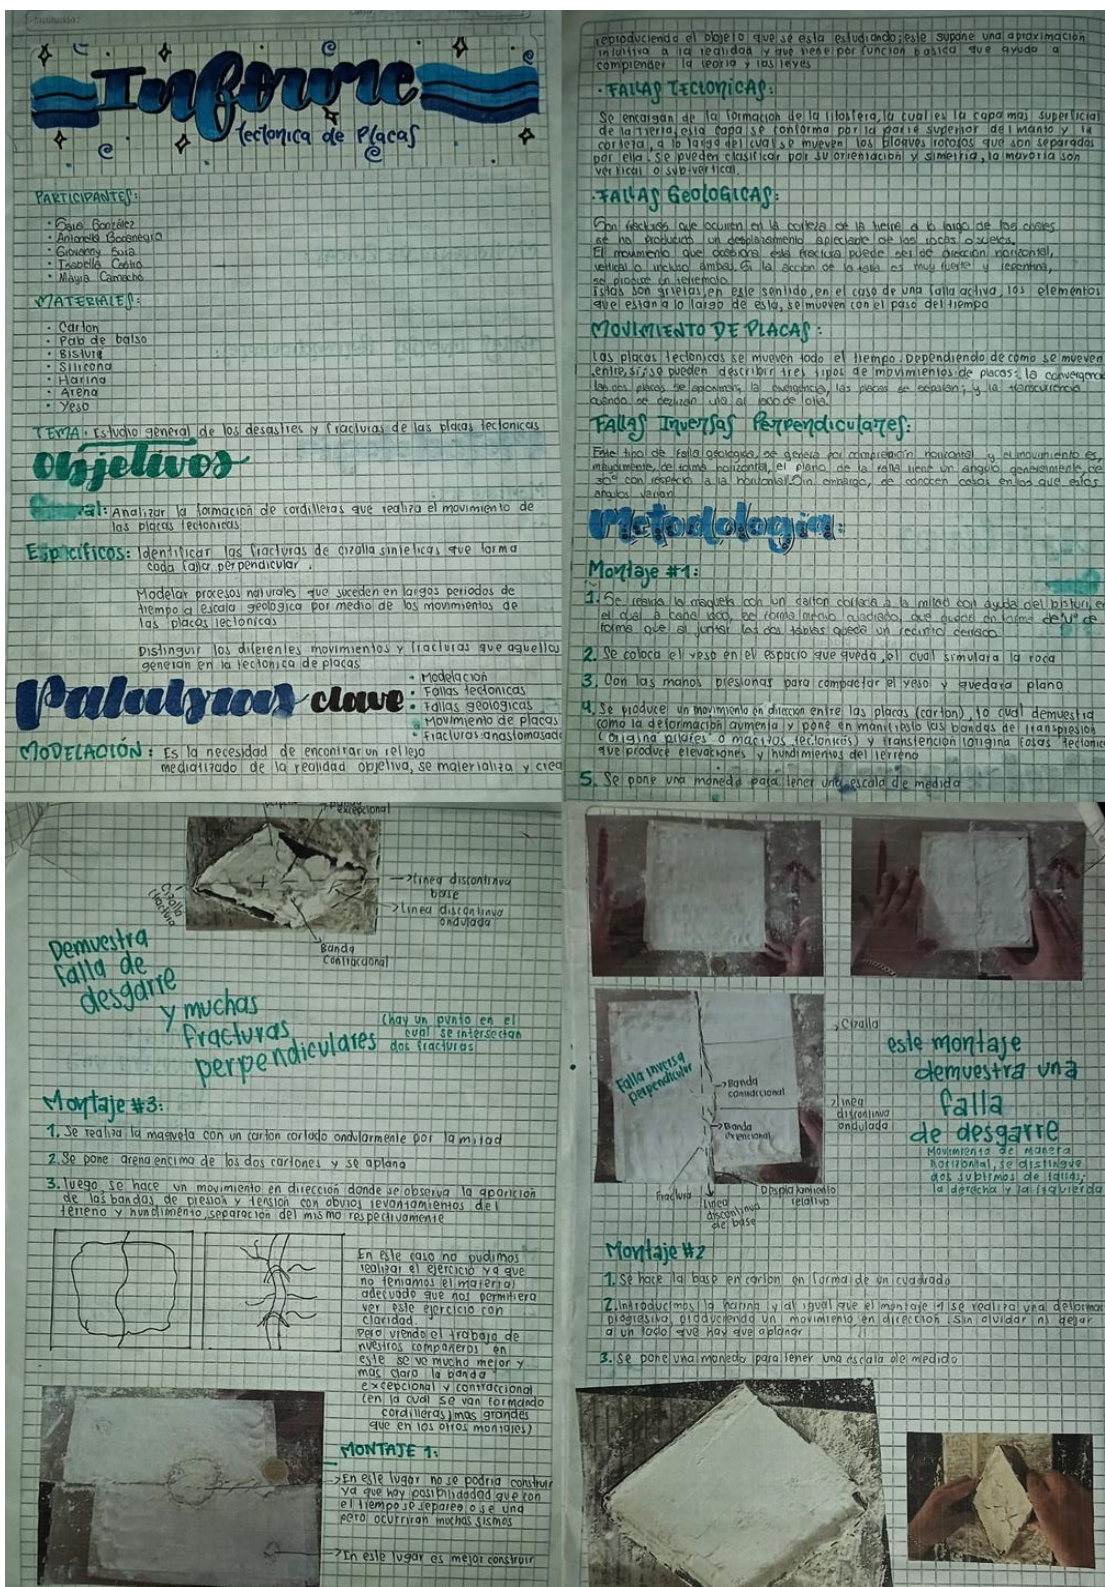 Informe
tectonica de Placas
PARTICIPANTES:
• Sara González
• Antonella Bocanegra
• Giovanny
• Isabella
• Mayra Camacho
MATERIALES:
• Carton
• Palo de balso
• Bisturi
• Silicona
• Harina
• Arena
• Yeso
TEMA: Estudio general de los desastres y fracturas de las placas tectonicas
Objetivos
General: Analizar la formación de cordilleras que realiza el movimiento de
las placas tectonicas
Específicos: Identificar las fracturas de cizalla sinteticas que forma
cada falla perpendicular.
Modelar procesos naturales que suceden en largos periodos de
tiempo a escala geologica por medio de los movimientos de
las placas tectonicas
Distinguir los diferentes movimientos y fracturas que aquellos
generan en la tectonica de placas
Palabras clave
• Modelación
• Fallas tectonicas
• Fallas geologicas
• Movimiento de placas
• Fracturas anastomasado
MODELACIÓN: Es la necesidad de encontrar un reflejo
mediatizado de la realidad objetiva, se materializa y crea
reproduciendo el objeto que se esta estudiando; este supone una aproximación
intuitiva a la realidad y que tiene por funcion basica que ayuda a
comprender la teoria y las leyes
• FALLAS TECTONICAS:
Se encargan de la formación de la litosfera, la cual es la capa mas superficial
de la tierra, esta capa se conforma por la parte superior del manto y la
corteza, a lo largo del cual se mueven los bloques rocosos que son separados
por ella. Se pueden clasificar por su orientación y simetria, la mayoria son
vertical o subvertical.
• FALLAS GEOLOGICAS:
Son fracturas que ocurren en la corteza de la tierra a lo largo de las cuales
se ha producido un desplazamiento apreciable de las rocas o suelos.
El movimiento que ocasiona esta fractura puede ser de dirección horizontal,
vertical o incluso ambas. Si la acción de la falla es muy fuerte y repentina,
se produce un terremoto.
Estas son grietas, en este sentido, en el caso de una falla activa, los elementos
que estan a lo largo de esta, se mueven con el paso del tiempo
MOVIMIENTO DE PLACAS:
Las placas tectonicas se mueven todo el tiempo. Dependiendo de como se mueven
entre si; se pueden describir tres tipos de movimientos de placas: la convergencia
las dos placas se aproximen; la divergencia, las placas se separan; y la transcurrencia
cuando se deslizan una al lado de otra.
FALLAS Inversas Perpendiculares:
Este tipo de falla geologica, se genera por compresión horizontal y el movimiento es,
mayormente, de forma horizontal, el plano de la falla tiene un angulo generalmente, de
30° con respecto a la horizontal. Sin embargo, se conocen casos en los que estos
angulos varian
Metodología:
Montaje #1:
1. Se realiza la maqueta con un carton cortado a la mitad con ayuda del bisturi, en
el cual a cada lado, se forma medio cuadrado, que quede en forma de "U" de
forma que al juntar las dos tablas quede un recinto cerrado
2. Se coloca el yeso en el espacio que queda, el cual simulara la roca
3. Con las manos presionas para compactar el yeso y quedara plano
4. Se produce un movimiento en dirección entre las placas (carton), lo cual demuestra
como la deformación aumenta y pone en manifiesto las bandas de transpresión
(origina pilares o macizos tectonicos) y transtención (origina fosas tectonic
que produce elevaciones y hundimientos del terreno
5. Se pone una moneda para tener una escala de medida
excepcional
→ linea discontinua
base
→ linea discontinua
ondulada
Cizalla
fractura
Banda
Contraccional
Demuestra
falla de
desgarre
y muchas
fracturas
perpendiculares
(hay un punto en el
cual se intersectan
dos fracturas
Montaje #3:
1. Se realiza la maqueta con un carton cortado onduladamente por la mitad
2. Se pone arena encima de los dos cartones y se aplana
3. luego se hace un movimiento en dirección donde se observa la aparición
de las bandas de presion y tensión con obvios levantamientos del
terreno y hundimiento, separación del mismo respectivamente
En este caso no pudimos
realizar el ejercicio ya que
no teniamos el material
adecuado que nos permitiera
ver este ejercicio con
claridad.
Pero viendo el trabajo de
nuestros compañeros en
este se ve mucho mejor y
mas claro la banda
excepcional y contraccional
(en la cual se van formando
cordilleras) mas grandes
que en los otros montajes)
MONTAJE 1:
→ En este lugar no se podria construir
ya que hay posibilidadad que con
el tiempo se separe o se una
pero ocurriran muchas sismos
→ En este lugar es mejor construir
Falla inversa
perpendicular
→ Banda
contraccional
→ Banda
Fractura
Linea
discontinua
de base
Desplazamiento
relativo
Cizalla
linea
discontinua
ondulada
este montaje
demuestra una
falla
de desgarre
Movimiento de manera
horizontal, se distingue
dos subtipos de fallas,
la derecha y la izquierda
Montaje #2
1. Se hace la base en carton en forma de un cuadrado
2. Introducimos la harina y al igual que el montaje 1 se realiza una deformac
progresiva, produciendo un movimiento en dirección. Sin olvidar ni dejar
a un lado que hay que aplanar
3. Se pone una moneda para tener una escala de medida